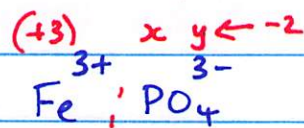 (+3) x y ← -2
Fe³⁺ ¦ PO₄³⁻